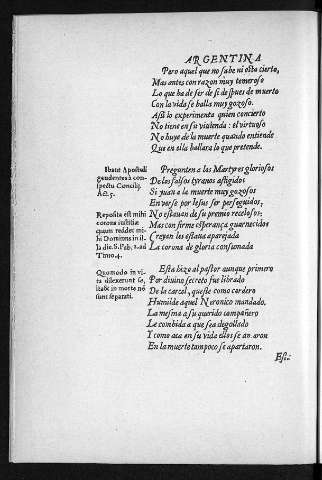 ARGENTINA
Pero aquel que no sabe ni està cierto,
Mas antes con razon muy temeroso
Lo que ha de ser de si despues de muerto
Con la vida se halla muy gozoso.
Assi lo experimenta quien concierto
No tiene en su viuienda: el virtuoso
No huye de la muerte quando entiende
Que en ella hallara lo que pretende.
Ibant Apostoli
gaudentes à con-
spectu Concilij.
Act. 5.
Pregunten a las Martyres gloriosos
De los falsos tyranos afligidos
Si juan a la muerte muy gozosos
En verse por Iesus ser perseguidos,
Reposita est mihi
corona iustitiæ
quam reddet mi-
hi Dominus in il-
la die. S. Pab. 2. ad
Timo. 4.
No estauan de su premio recelosos:
Mas con firme esperança guarnecidos
Creyan les estaua aparejada
La corona de gloria consumada
Quomodo in vi-
ta dilexerunt se,
ita & in morte nõ
sunt separati.
Esta hizo al pastor aunque primero
Por diuino secreto fue librado
De la carcel, que este como cordero
Humilde aquel Neronico mandado.
La mesma a su querido compañero
Le combida a que sea degollado
Y como aca en su vida ellos se amaron
En la muerte tampoco se apartaron.